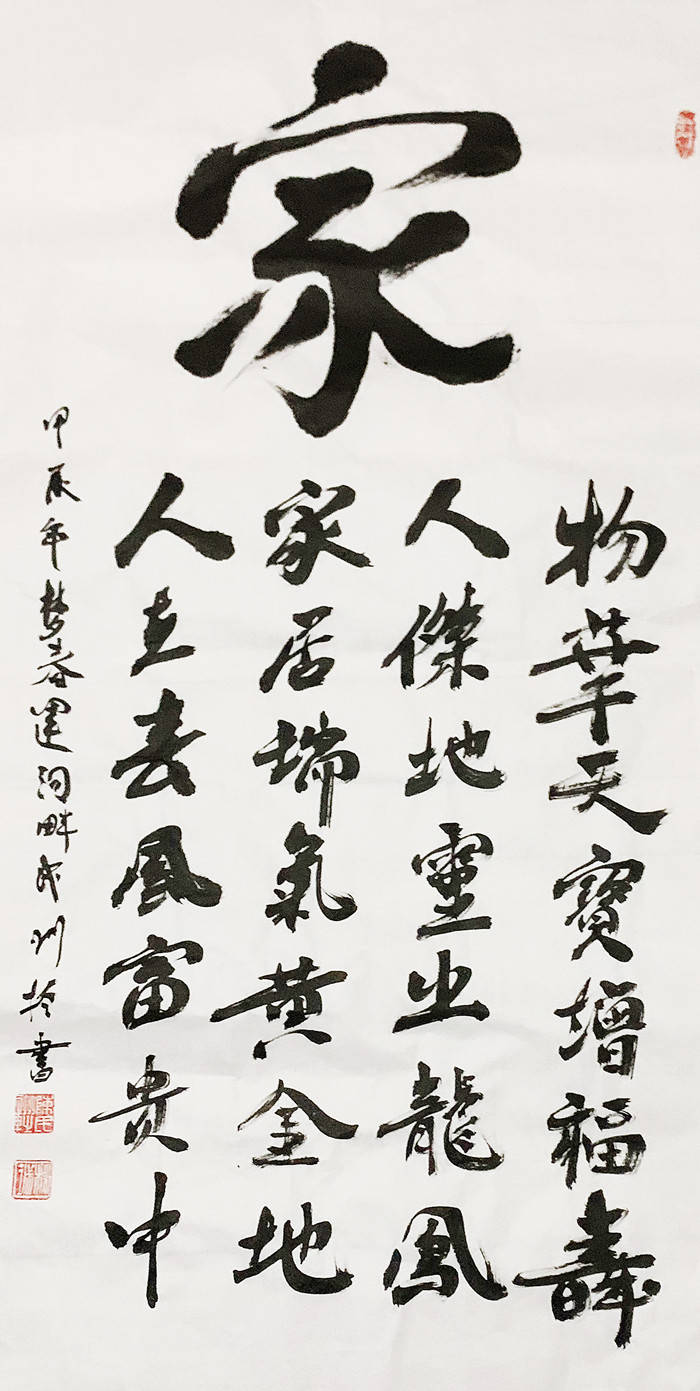 家
物華天寶增福壽
人傑地靈出龍鳳
家居瑞氣黃金地
人在春風富貴中
甲辰年梦春運河畔民州書